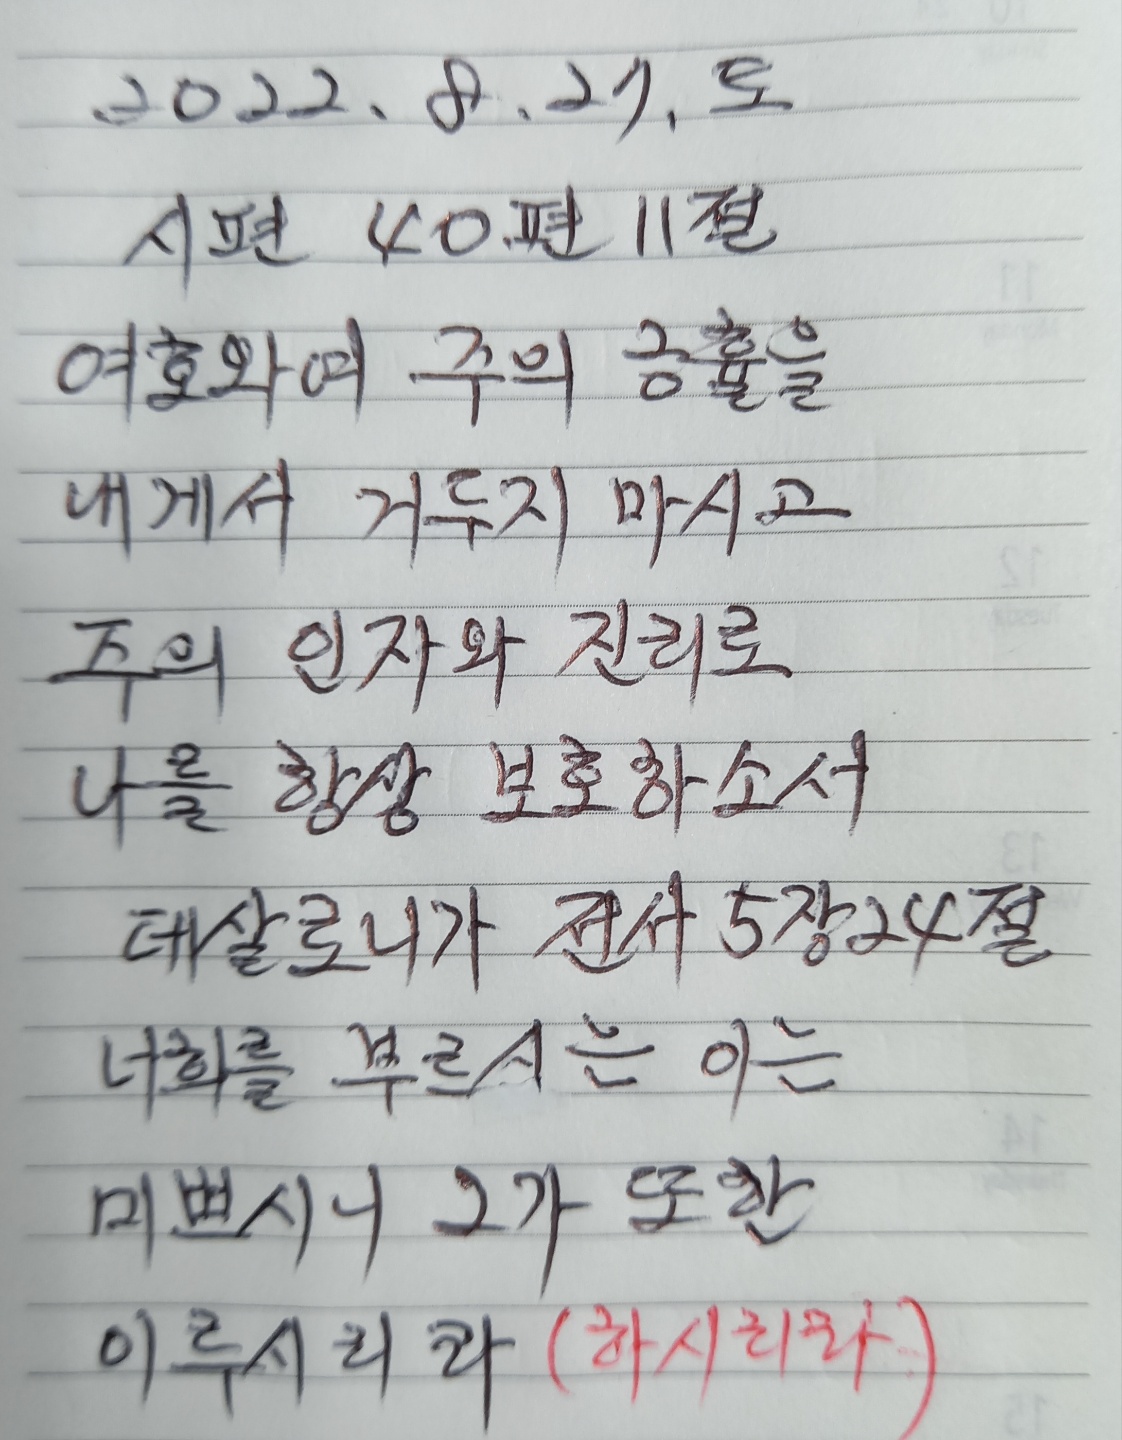 2022. 8. 27. 토
시편 40편 11절
여호와여 주의 긍휼을
내게서 거두지 마시고
주의 인자와 진리로
나를 항상 보호하소서
데살로니가 전서 5장24절
너희를 부르시는 이는
미쁘시니 그가 또한
이루시리라 (하시리라)